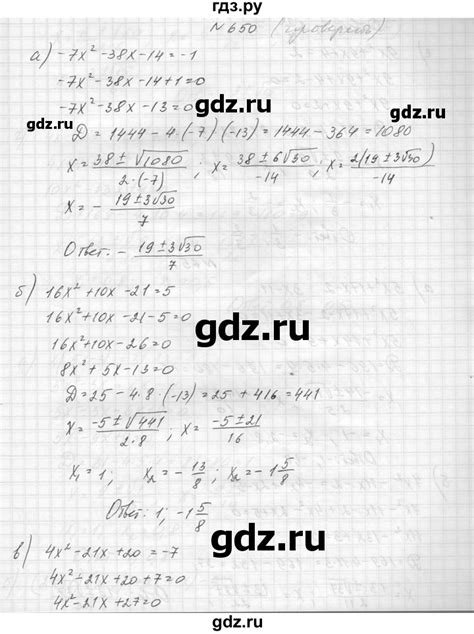 гдз.ру
№650 (
а) -7x² -38x -14 = -1
-7x² -38x -14+1=0
-7x² -38x -13=0
gdz.ru
gdz.ru
D = 1444 - 4·(-7)·(-13) = 1444 - 364 = 1080
x = (38 ± √1080)/(2·(-7)); x = (38 ± 6√30)/(-14); x = 2(19 ± 3√30)/(-14)
x = - (19 ± 3√30)/7
Ответ: - (19 ± 3√30)/7
gdz.ru
gdz.ru
б) 16x² +10x -21 = 5
16x² +10x -21-5=0
16x² +10x -26=0
gdz.ru
8x² + 5x -13=0
D = 25 - 4·8·(-13) = 25 + 416 = 441
x = (-5 ± √441)/(2·8); x = (-5 ± 21)/16
x₁ = 1; x₂ = - 13/8; x₂ = -1 5/8
Ответ: 1; -1 5/8
gdz.ru
в) 4x² -21x +20 = -7
4x² -21x +20 +7=0
4x² -21x +27=0
gdz.ru
gdz.ru